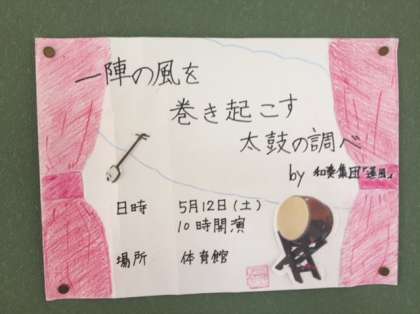 一陣の風を
巻き起こす
太鼓の調べ
by 和奏集団「蓮風」
日時 5月12日(土)
10時開演
場所 体育館